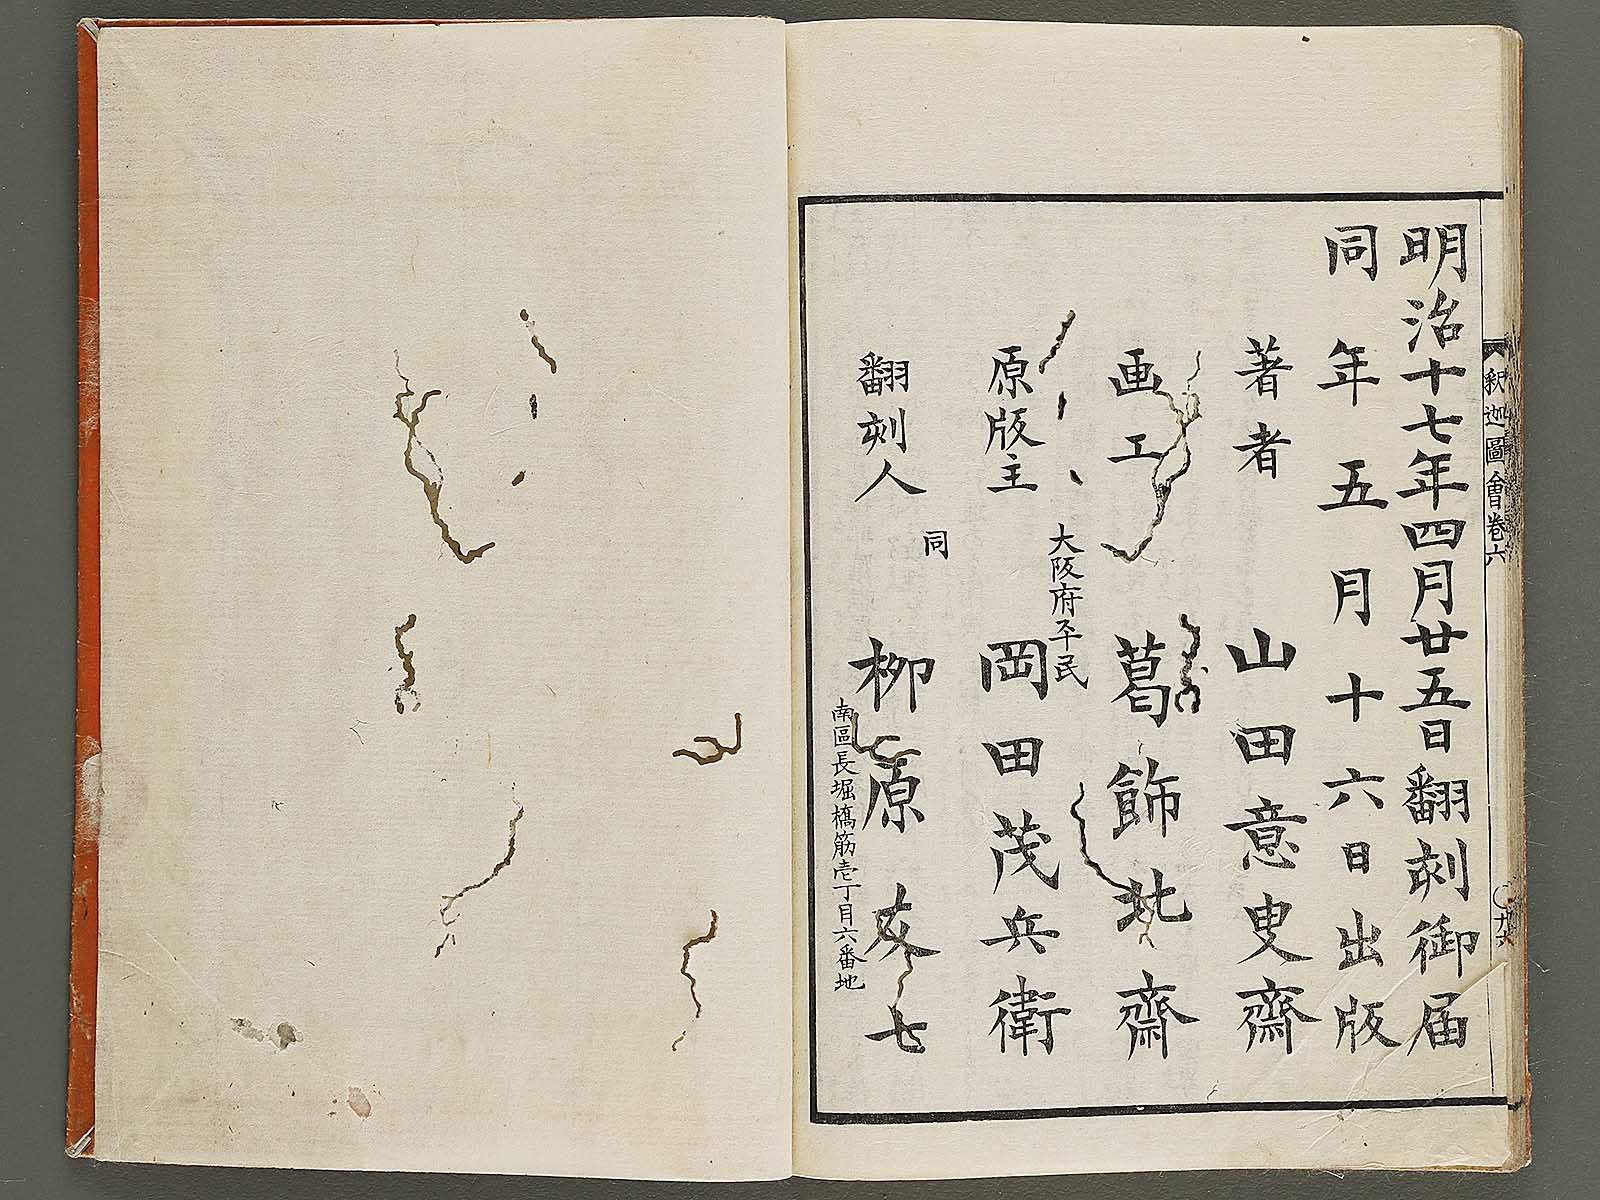 釈迦圖會卷六
明治十七年四月廿五日翻刻御届
同年五月十六日出版
著者 山田意叟齋
画工 葛飾北齋
大阪府平民
原版主 岡田茂兵衛
同
翻刻人 柳原友七
南區長堀橋筋壱丁目六番地